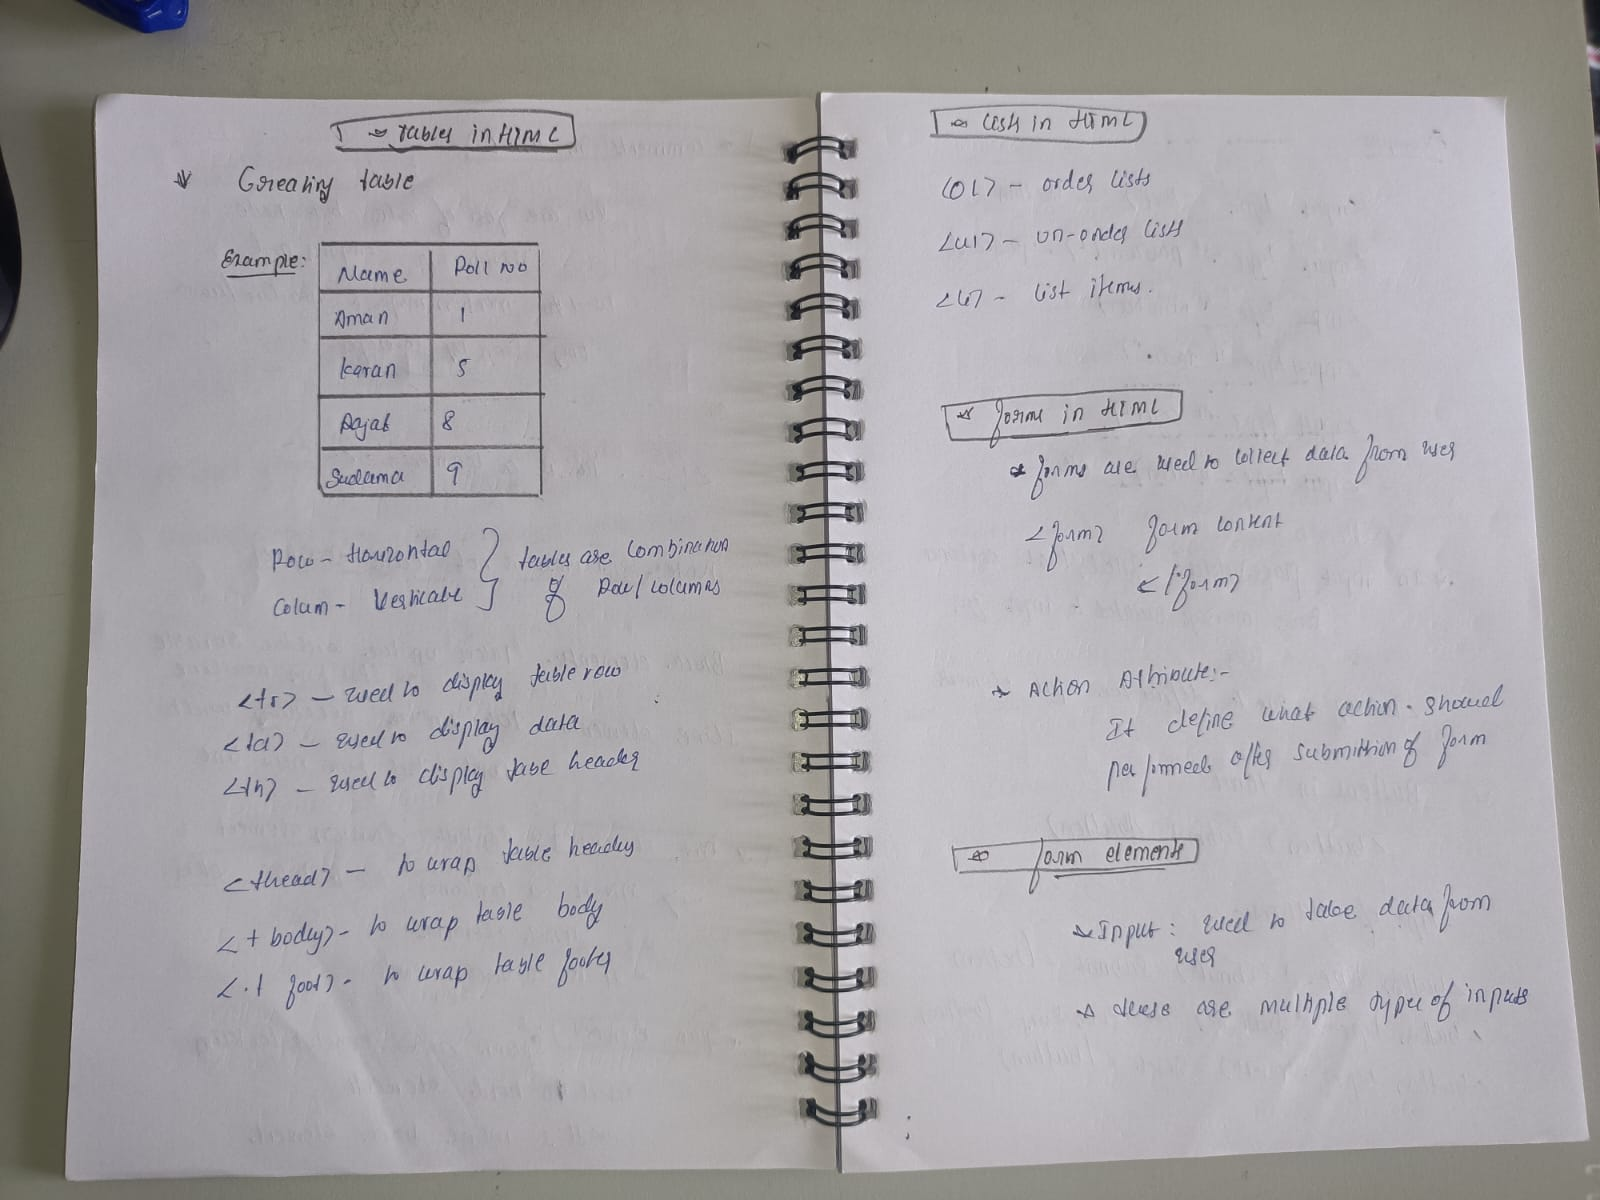 Tables in HTML
Creating table
Example:
Name Roll no
Aman 1
Karan 5
Rajat 8
Sudama 9
Row - Horizontal
Colum - Verticale
tables are combination
of Row/columns
<tr> - used to display table row
<td> - used to display data
<th> - used to display table header
<thead> - to wrap table header
<tbody> - to wrap table body
<tfoot> - to wrap table footer
Lists in HTML
<OL> - order lists
<ul> - un-order lists
<li> - list items.
forms in HTML
forms are used to collect data from user
<form> form content
</form>
Action Attribute:-
It define what action should
performed after submission of form
form elements
Input: used to take data from
user
these are multiple type of inputs